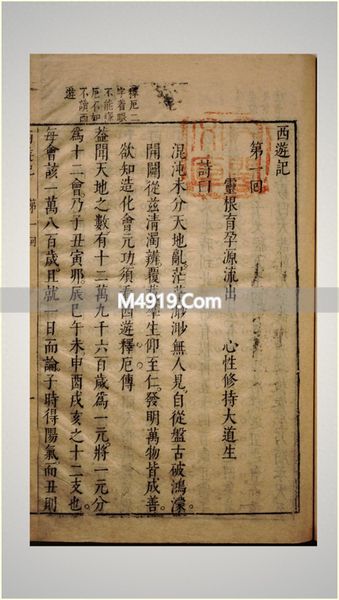 西遊記
第一回
靈根育孕源流出 心性修持大道生
詩曰
混沌未分天地亂茫茫渺渺無人見自從盤古破鴻濛。
開闢從茲清濁辨覆羣生仰至仁。發明萬物皆成善。
欲知造化會元功須看西遊釋厄傳
葢聞天地之數有十二萬九千六百歲為一元將一元分
為十二會乃子丑寅卯辰巳午未申酉戌亥之十二支也。
每會該一萬八百歲。且就一日而論子時得陽氣而丑則
釋厄二
字着眼
不能釋
厄不如
不讀西
遊
第一回
M4919.Com